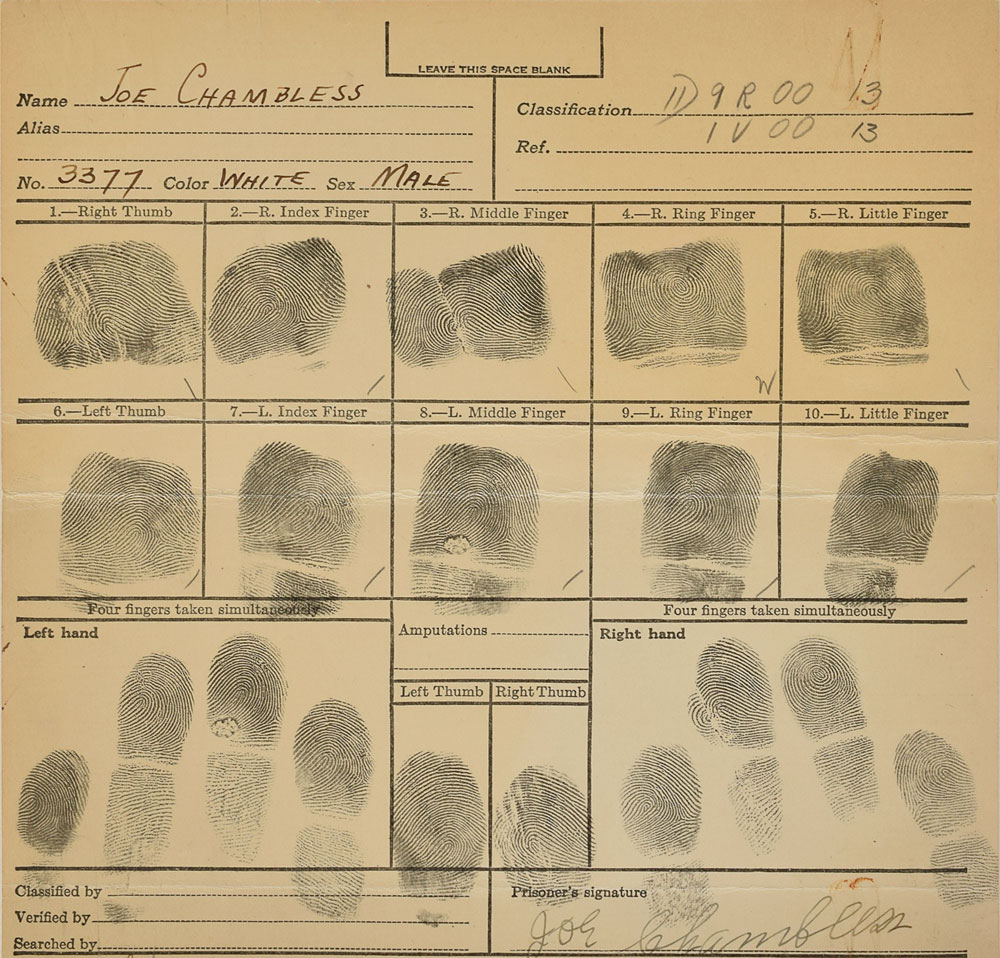 LEAVE THIS SPACE BLANK
Name JOE CHAMBLESS
Alias
No. 3377 Color WHITE Sex MALE
Classification 9 R 00 13
1 V 00 13
Ref.
1.—Right Thumb 2.—R. Index Finger 3.—R. Middle Finger 4.—R. Ring Finger 5.—R. Little Finger
\ / \ W \
6.—Left Thumb 7.—L. Index Finger 8.—L. Middle Finger 9.—L. Ring Finger 10.—L. Little Finger
/ / / / /
Four fingers taken simultaneously Four fingers taken simultaneously
Left hand Amputations Right hand
Left Thumb Right Thumb
Classified by
Verified by
Searched by
Prisoner's signature
Joe Chambless